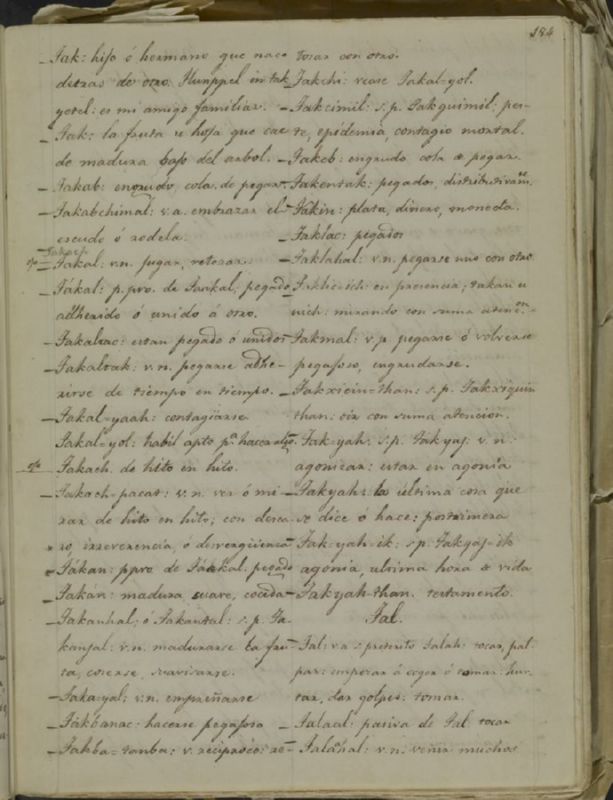 184
Tak: hijo ó hermano que nace
detras de otro. Hunppel in tak
yetel: es mi amigo familiar.
Tak: la fruta u hoja que cae
de madura bajo del arbol.
Takab: engrudo, cola de pegar.
Takabchimal: v.a. embrazar el
escudo ó rodela.
Takach
Takal: v.n. jugar, retozar.
Tákal: p.pro. de Taakal, pegado
adherido ó unido á otro.
Takalzac: estan pegado ó unidos
Takaltak: v.n. pegarse adhe-
rirse de tiempo en tiempo.
Takal-yaah: contagiarse
Takal-yol: habil apto pa. hacer algo.
Takach. de hito en hito.
Takach-pacat: v.n. ver ó mi-
rar de hito en hito; con desca-
ro, irreverencia, ó desvergüenza
Tákan: ppro. de Táakal. pegado
Takán: madura, suave, cocida
Takanhal; ó Takantal: s.p. Ta-
kanjal: v.n. madurarse la fru-
ta, cocerse, suavizarse.
Taka-yal: v.n. empreñarse
Takbanac: hacerse pegajoso
Takba-tanba: v. reciproco: re-
tozar con otro.
Takchi: vease Takal-yol.
Takcimil: s.p. Takquimil: pes-
te, epidemia, contagio mortal.
Takeb: engrudo cola de pegar.
Takentak: pegados, distributivam.te
Tákin: plata, dinero, moneda.
Taklac: pegados
Taklahal: v.n. pegarse uno con otro
en presencia; takan u
uich: mirando con suma atencon.
Takmal: v.p. pegarse ó volverse
pegajoso, engrudarse.
Takxicin-than: s.p. Takxiquin
than: oir con suma atencion.
Tak-yah: s.p. Takyaj: v.n:
agonizar: estar en agonía
Takyah: la última cosa que
se dice ó hace: postrimera
Tak-yah-ik: s.p. Takyaj-ik
agonía, ultima hora de vida
Takyah-than. testamento.
Tal.
Tal: v.a. preterito Talah: tocar, pal-
par: empezar á coger ó tomar: hur-
tar, dar golpes: tomar.
Talaal: pasiva de Tal tocar
Talahal: v.n. venir muchos